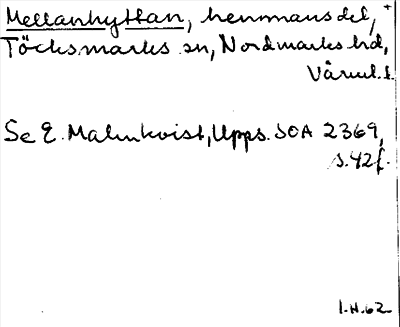 Mellanhyttan, hemmansdel, +
Töcksmarks sn, Nordmarks hd,
Värml. l.
Se E. Malmkvist, Upps. SOA 2369,
s. 42 f.
1.H.62